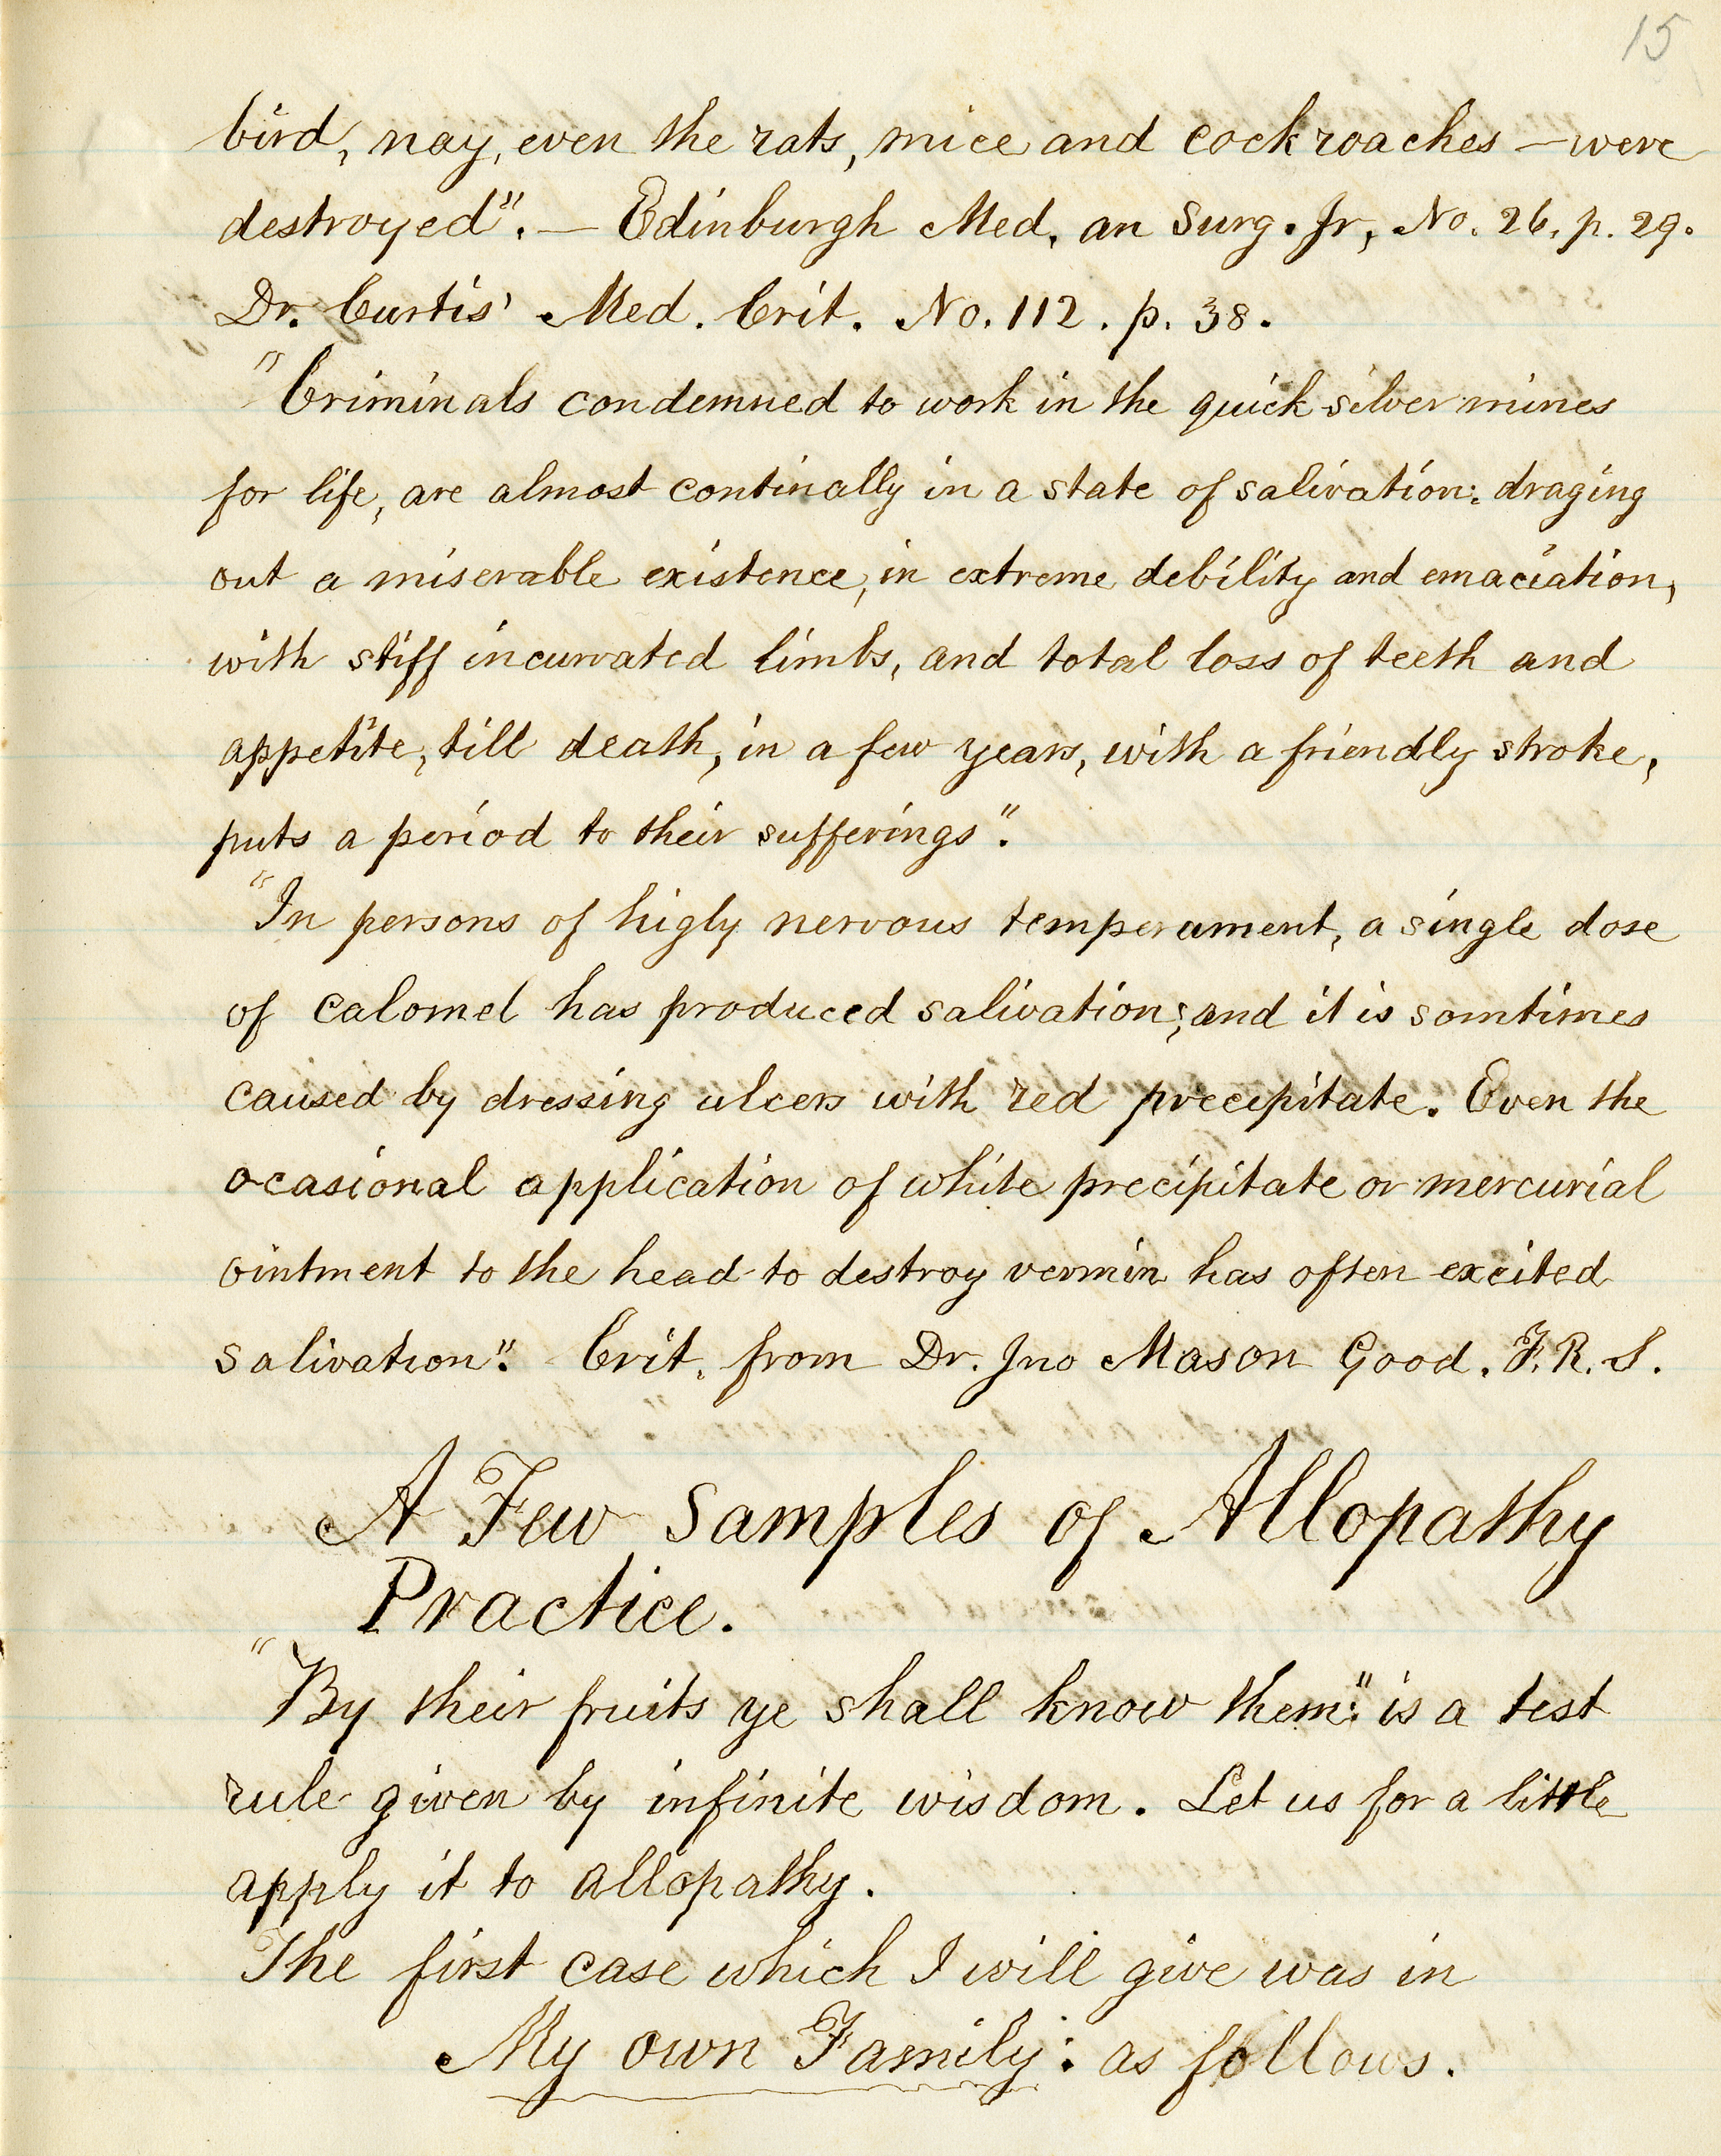 15
bird, nay, even the rats, mice and cockroaches — were
destroyed". — Edinburgh Med. an Surg. Jr, No. 26, p. 29.
Dr. Curtis' Med. Crit. No. 112. p. 38.
"Criminals condemned to work in the quick silver mines
for life, are almost continally in a state of salivation: draging
out a miserable existence, in extreme debility and emaciation,
with stiff incurvated limbs, and total loss of teeth and
appetite, till death, in a few years, with a friendly stroke,
puts a period to their sufferings".
"In persons of higly nervous temperament, a single dose
of calomel has produced salivation; and it is somtimes
caused by dressing ulcers with red precipitate. Even the
ocasional application of white precipitate or mercurial
ointment to the head to destroy vermin has often excited
salivation". Crit. from Dr. Jno Mason Good. F. R. S.
A Few Samples of Allopathy
Practice.
"By their fruits ye shall know them". is a test
rule given by infinite wisdom. Let us for a little
apply it to allopathy.
The first case which I will give was in
My own Family: as follows.